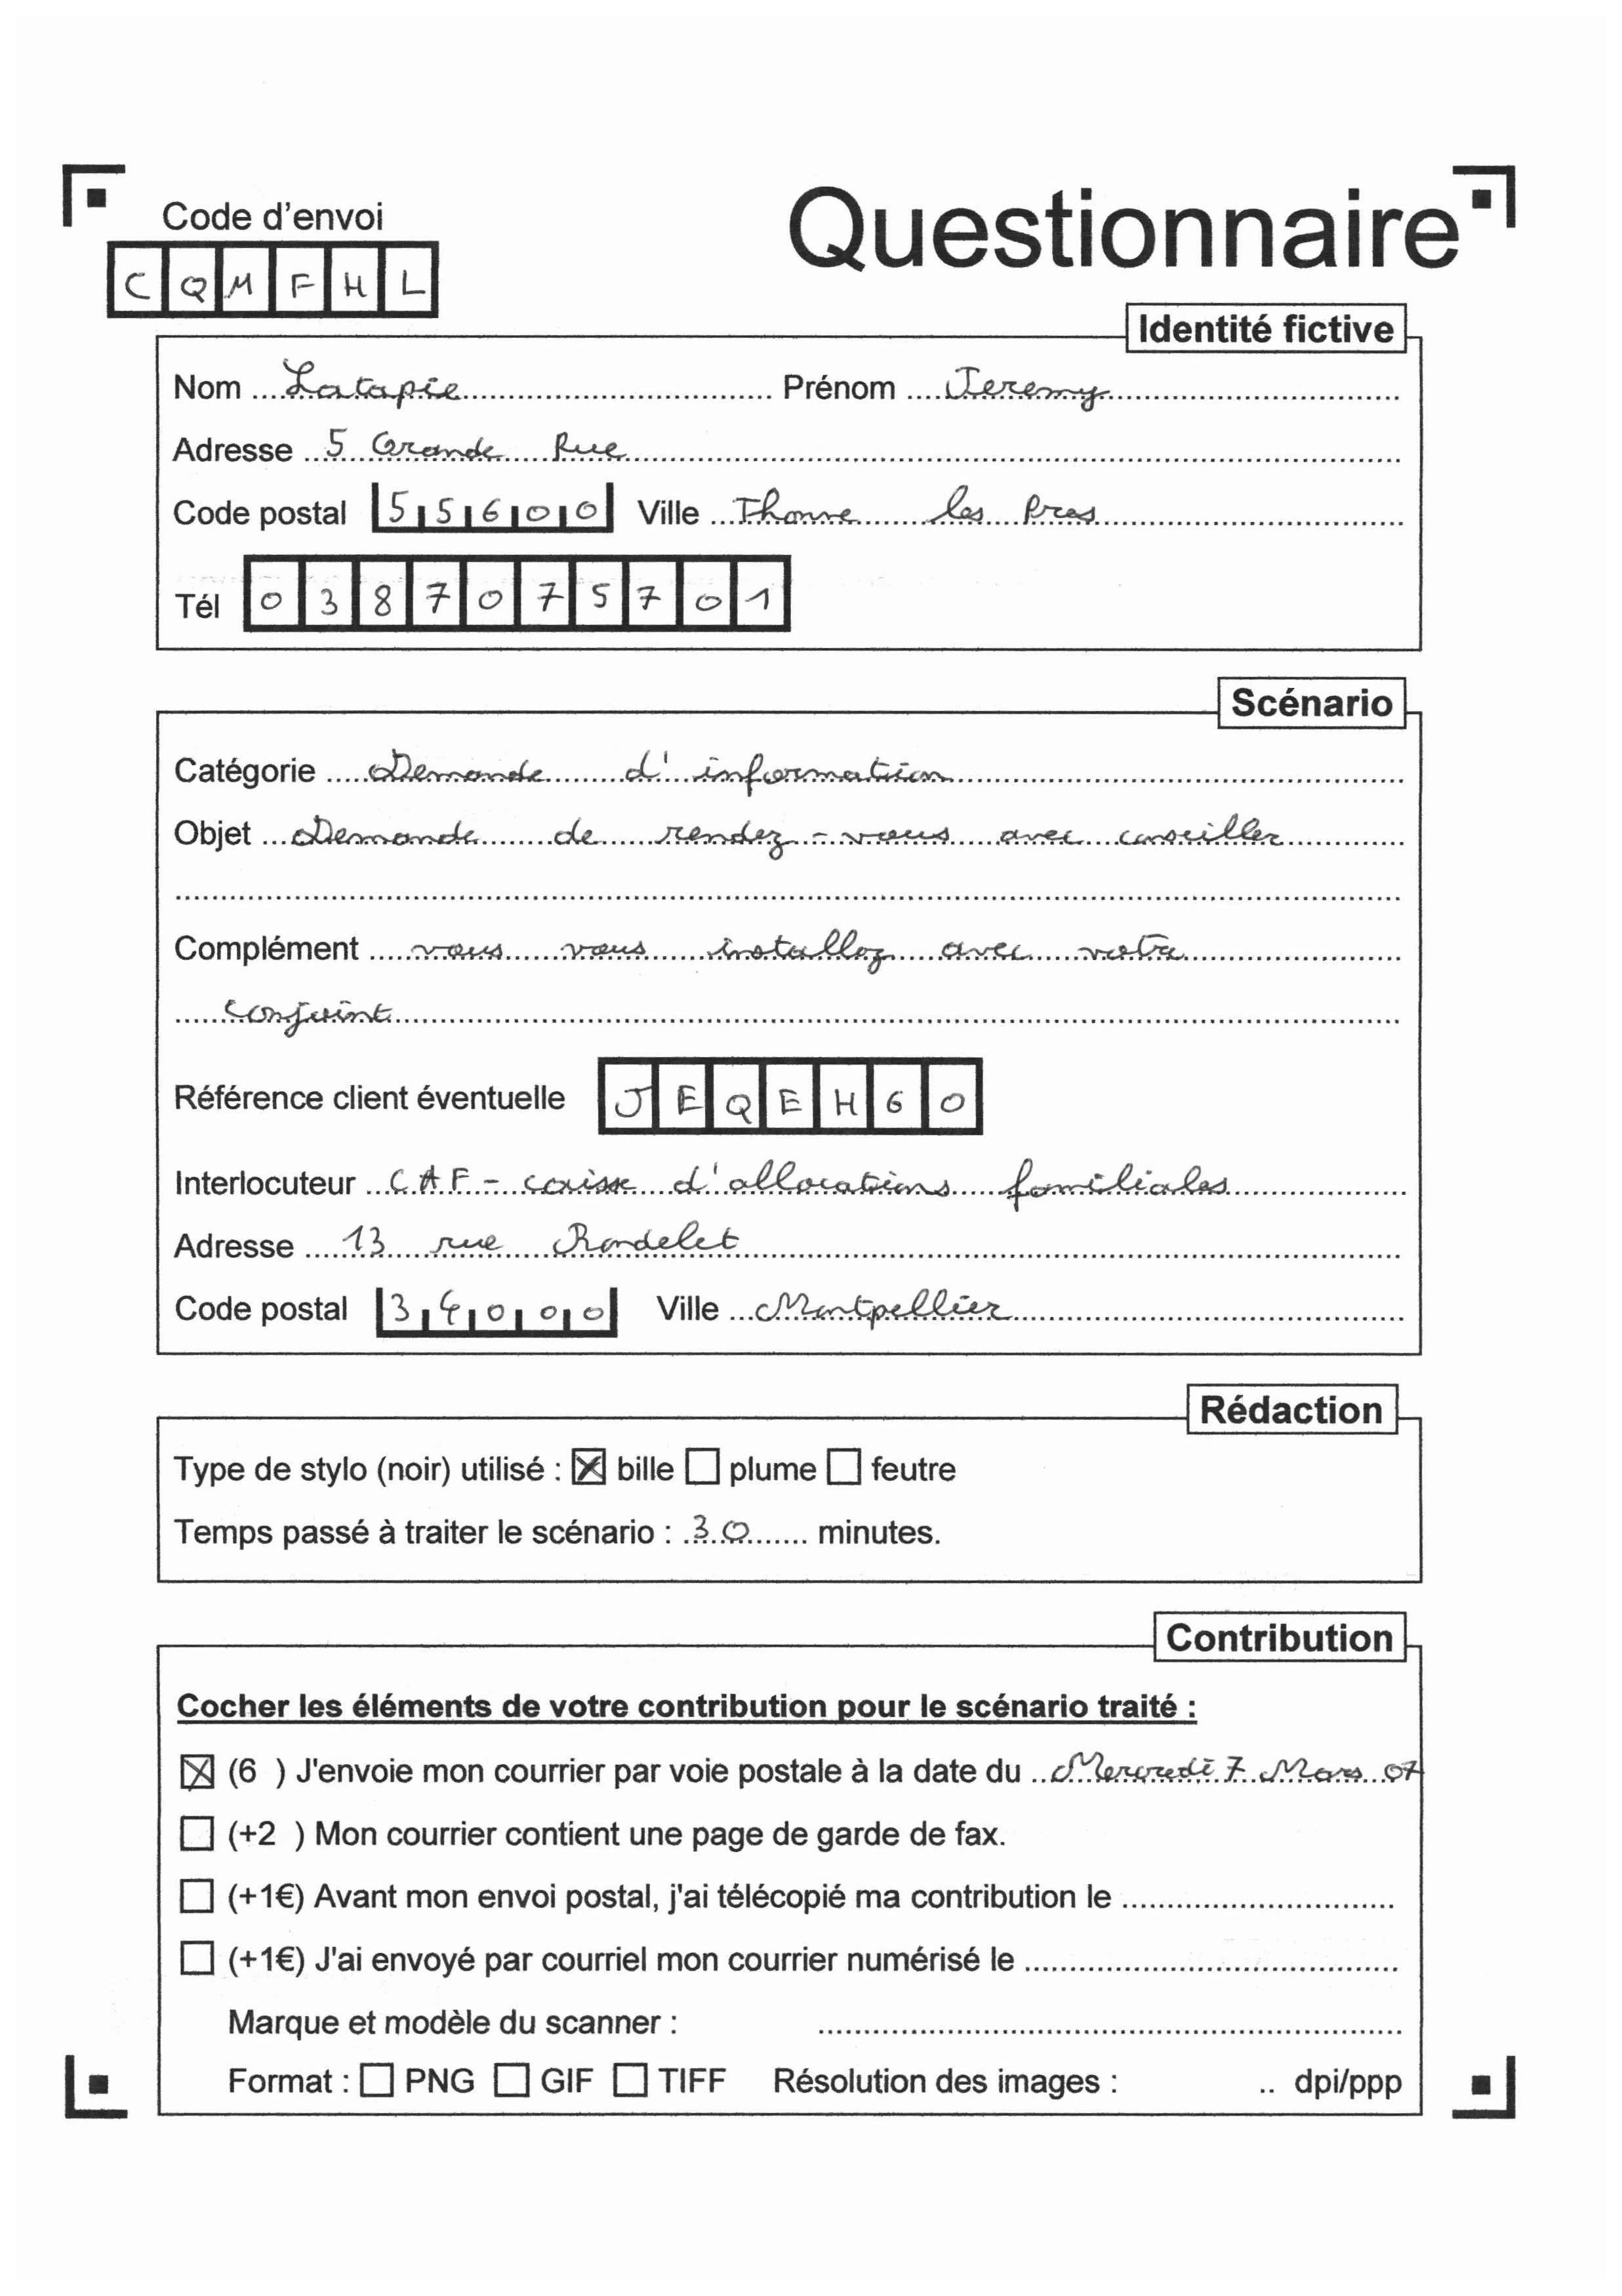 Code d'envoi
Questionnaire
CQMFHL
Identité fictive
Nom Latapie Prénom Jeremy
Adresse 5 Grande Rue
Code postal 55600 Ville Thonne les Pres
Tél 0387075701
Scénario
Catégorie Demande d'information
Objet Demande de rendez-vous avec conseiller
Complément vous vous installez avec votre
conjoint
Référence client éventuelle JEQEH60
Interlocuteur CAF - caisse d'allocations familiales
Adresse 13 rue Rondelet
Code postal 34000 Ville Montpellier
Rédaction
Type de stylo (noir) utilisé : ☒ bille ☐ plume ☐ feutre
Temps passé à traiter le scénario : 30 minutes.
Contribution
Cocher les éléments de votre contribution pour le scénario traité :
☒ (6 ) J'envoie mon courrier par voie postale à la date du Mercredi 7 Mars 07
☐ (+2 ) Mon courrier contient une page de garde de fax.
☐ (+1€) Avant mon envoi postal, j'ai télécopié ma contribution le
☐ (+1€) J'ai envoyé par courriel mon courrier numérisé le
Marque et modèle du scanner :
Format : ☐ PNG ☐ GIF ☐ TIFF Résolution des images : .. dpi/ppp